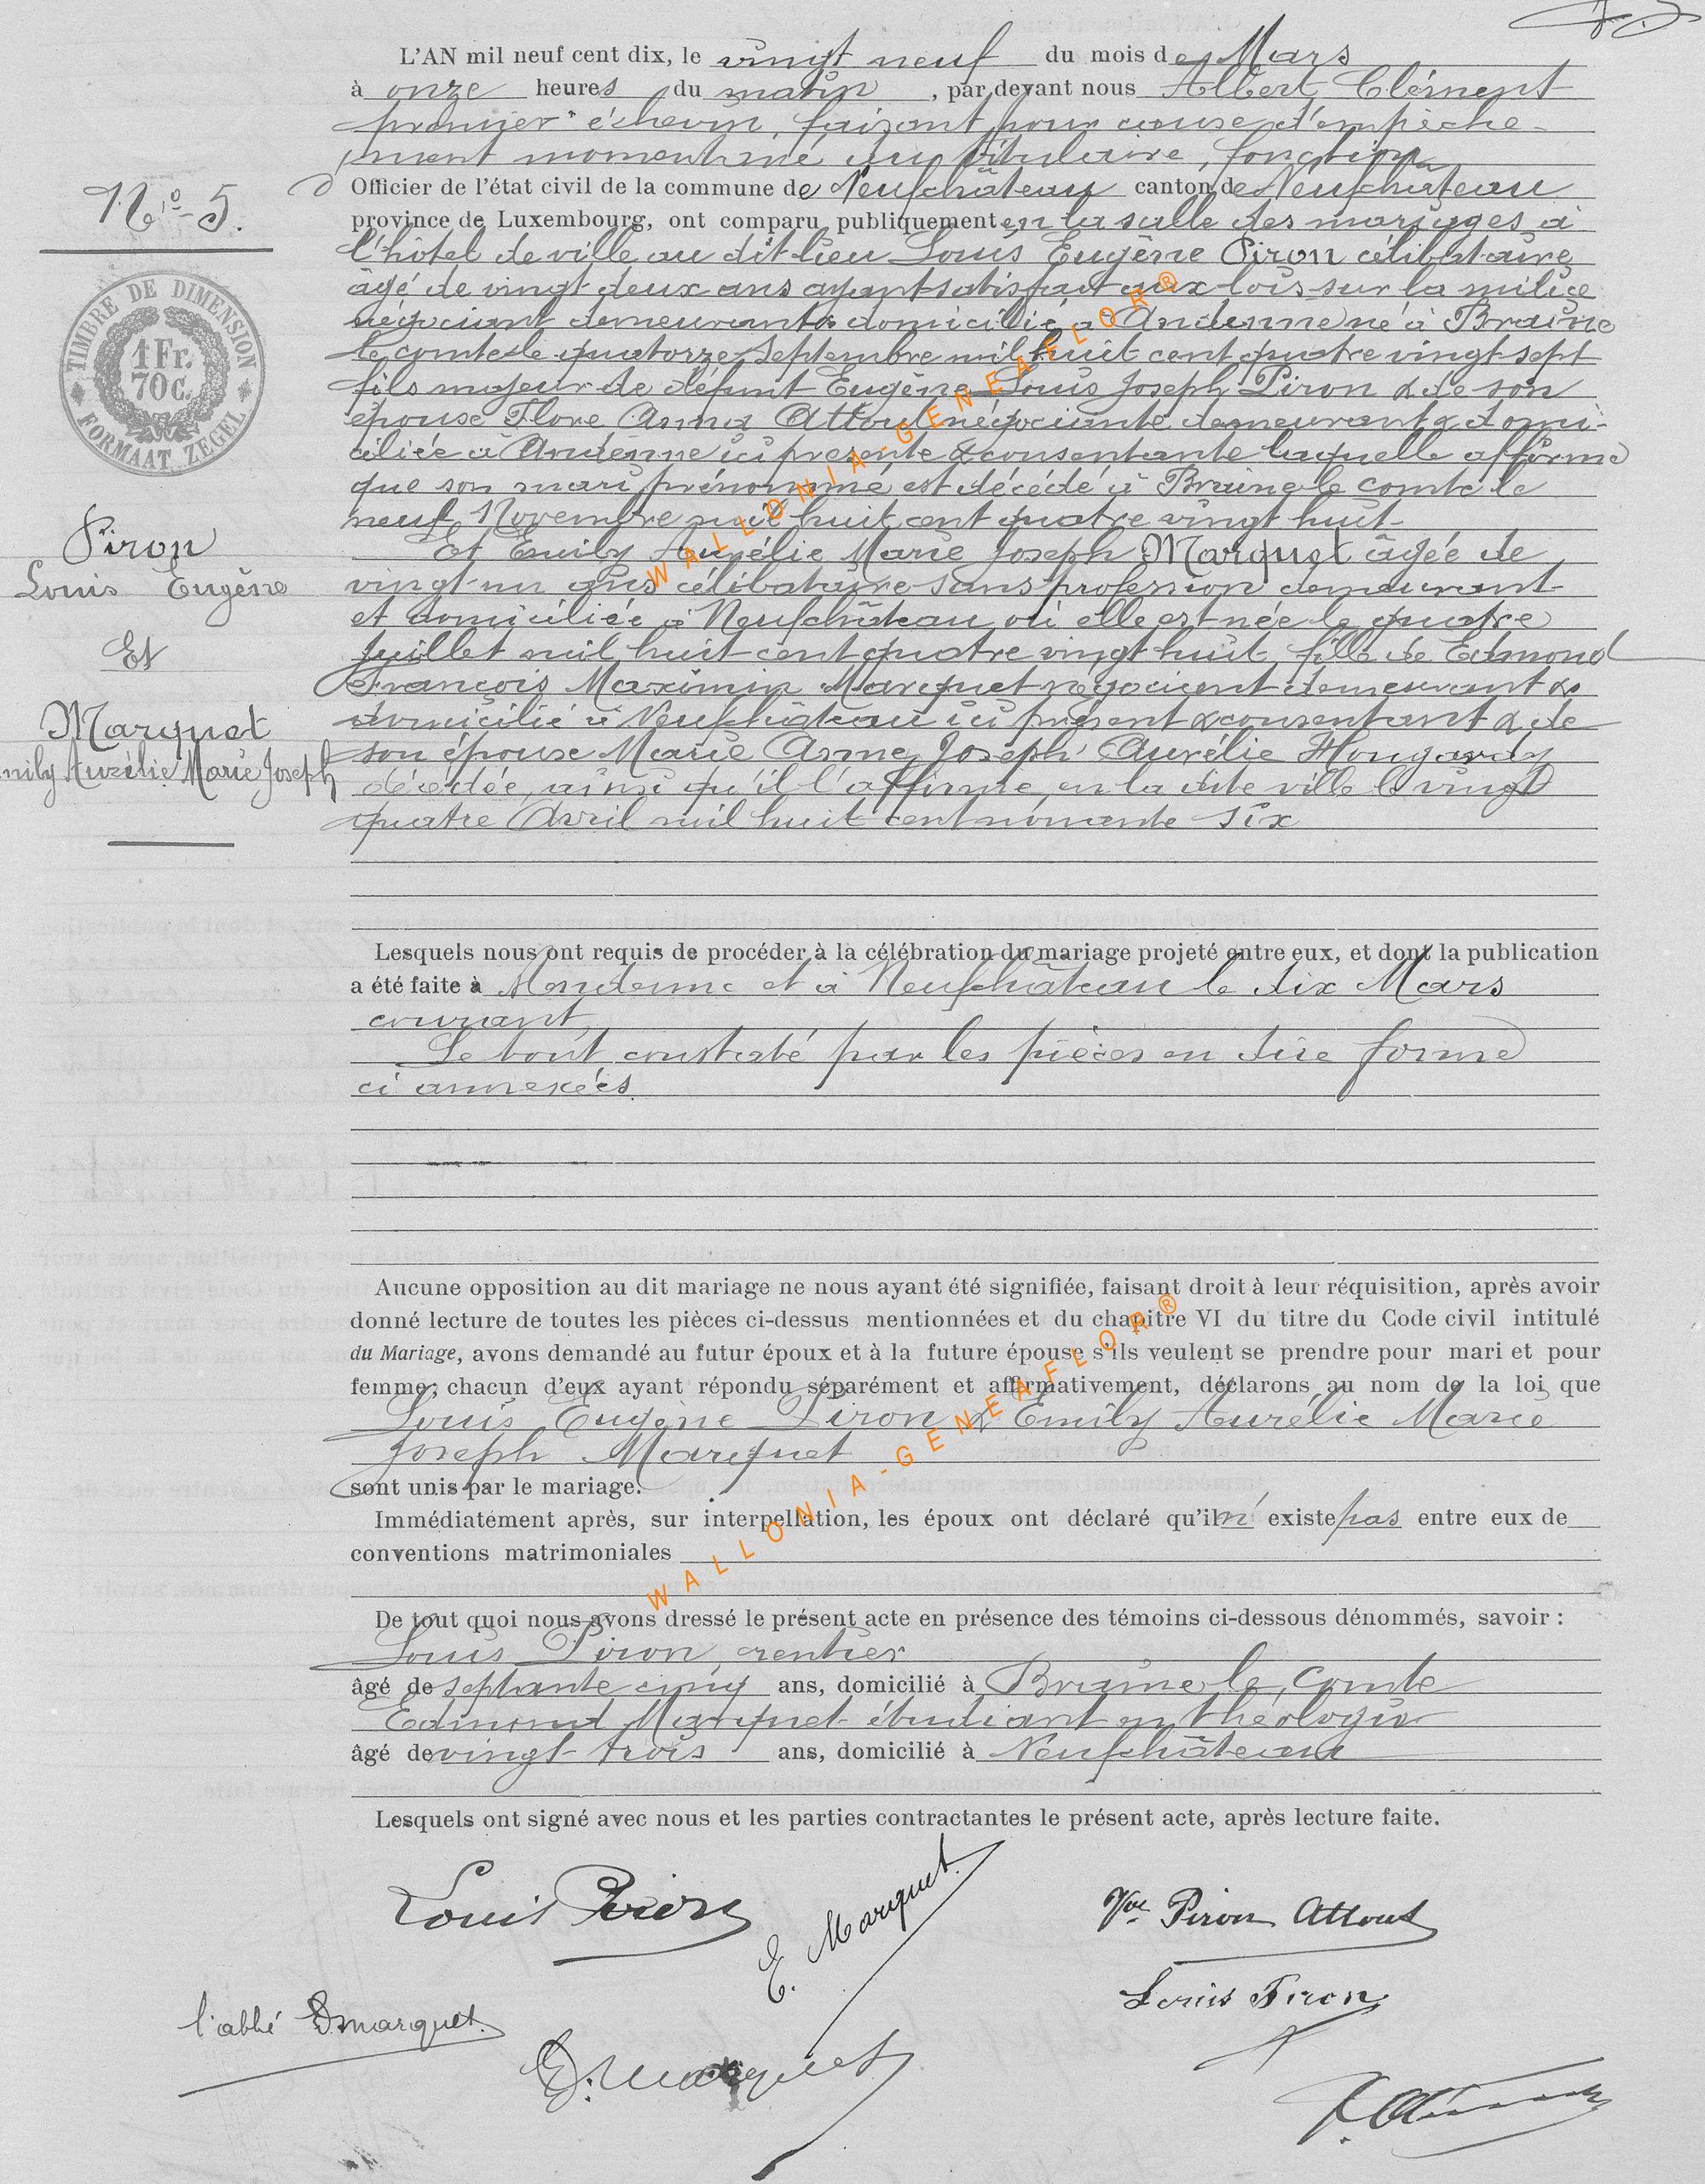 L'AN mil neuf cent dix, le vingt neuf du mois de Mars
à onze heures du matin, par devant nous Albert Clément
premier échevin, faisant pour cause d'empêche-
ment momentané du titulaire, fonction
N° 5.
d' Officier de l'état civil de la commune de Neufchâteau canton de Neufchâteau
province de Luxembourg, ont comparu publiquement en la salle des mariages à
l'hôtel de ville au dit lieu Louis Eugène Piron célibataire
âgé de vingt deux ans ayant satisfait aux lois sur la milice
négociant demeurant & domicilié à Andenne né à Braine
le comte le quatorze Septembre mil huit cent quatre vingt sept
fils majeur de défunt Eugène Louis Joseph Piron & de son
épouse Flore Anna Attout négociante demeurant & domi-
ciliée à Andenne ici présente & consentante laquelle affirme
que son mari prénommé est décédé à Braine le comte le
neuf Novembre mil huit cent quatre vingt huit
Et Emily Aurélie Marie Joseph Marquet âgée de
vingt-un ans célibataire sans profession demeurant
et domiciliée à Neufchâteau où elle est née le quatre
Juillet mil huit cent quatre vingt huit, fille de Edmond
François Maximin Marquet négociant demeurant &
domicilié à Neufchâteau ici présent & consentant & de
son épouse Marie Anne Joseph Aurélie Hougardy
décédée, ainsi qu'il l'affirme, en la dite ville le vingt
quatre Avril mil huit cent nonante six
TIMBRE DE DIMENSION
1 Fr.
70 c.
FORMAAT ZEGEL
Piron
Louis Eugène
Et
Marquet
mily Aurélie Marie Joseph
Lesquels nous ont requis de procéder à la célébration du mariage projeté entre eux, et dont la publication
a été faite à Andenne et à Neufchâteau le dix Mars
courant
Le tout constaté par les pièces en due forme
ci annexées.
Aucune opposition au dit mariage ne nous ayant été signifiée, faisant droit à leur réquisition, après avoir
donné lecture de toutes les pièces ci-dessus mentionnées et du chapitre VI du titre du Code civil intitulé
du Mariage, avons demandé au futur époux et à la future épouse s'ils veulent se prendre pour mari et pour
femme; chacun d'eux ayant répondu séparément et affirmativement, déclarons au nom de la loi que
Louis Eugène Piron & Emily Aurélie Marie
Joseph Marquet
sont unis par le mariage.
Immédiatement après, sur interpellation, les époux ont déclaré qu'il n'existe pas entre eux de
conventions matrimoniales
De tout quoi nous avons dressé le présent acte en présence des témoins ci-dessous dénommés, savoir :
Louis Piron, rentier
âgé de septante cinq ans, domicilié à Braine le Comte
Edmond Marquet étudiant en théologie
âgé de vingt trois ans, domicilié à Neufchâteau
Lesquels ont signé avec nous et les parties contractantes le présent acte, après lecture faite.
Louis Piron
E. Marquet
Vve Piron Attout
Louis Piron
l'abbé Ed Marquet.
E. Marquet
WALLONIA-GENEAFLOR®
WALLONIA-GENEAFLOR®